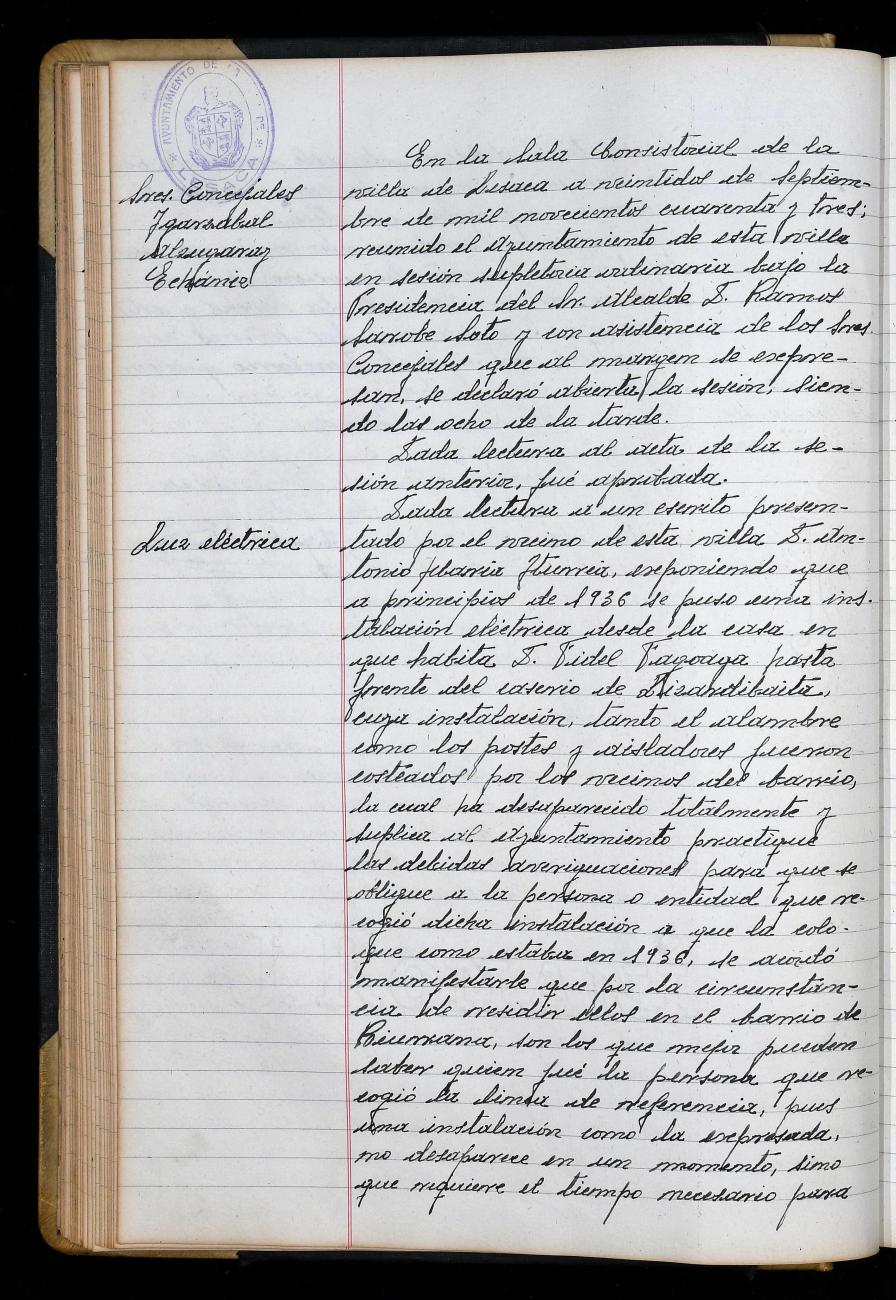 AYUNTAMIENTO DE
LESACA
Sres. Concejales
Igarzabal
Alzugaray
Echániz
En la Sala Consistorial de la
villa de Lesaca a veintidos de Septiem-
bre de mil novecientos cuarenta y tres;
reunido el Ayuntamiento de esta villa
en sesión supletoria ordinaria bajo la
Presidencia del Sr. Alcalde D. Ramos
Sarobe Soto y con asistencia de los Sres.
Concejales que al margen se expre-
san, se declaró abierta la sesión, sien-
do las ocho de la tarde.
Dada lectura al acta de la se-
sión anterior, fué aprobada.
Luz eléctrica
Dada lectura a un escrito presen-
tado por el vecino de esta villa D. An-
tonio Iturria, exponiendo que
a principios de 1936 se puso una ins-
talación eléctrica desde la casa en
que habita D. Fidel Fagoaga hasta
frente del caserio de
cuya instalación, tanto el alambre
como los postes y aisladores fueron
costeados por los vecinos del barrio,
la cual ha desaparecido totalmente y
suplica al Ayuntamiento practique
las debidas averiguaciones para que se
obligue a la persona o entidad que re-
cogió dicha instalación a que la colo-
que como estaba en 1936, se acordó
manifestarle que por la circunstan-
cia de residir ellos en el barrio de
son los que mejor pueden
saber quien fué la persona que re-
cogió la linea de referencia, pues
una instalación como la expresada,
no desaparece en un momento, sino
que requiere el tiempo necesario para